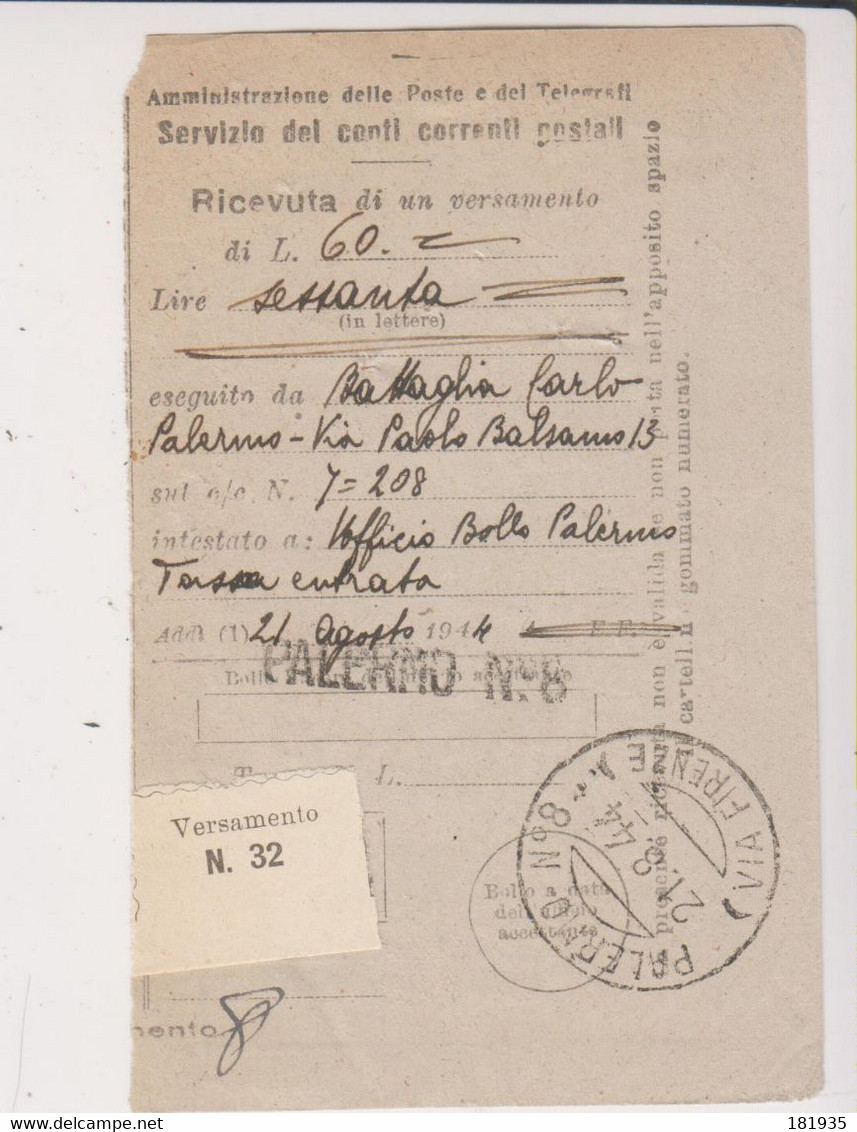 Amministrazione delle Poste e dei Telegrafi
Servizio dei conti correnti postali
Ricevuta di un versamento
di L. 60.
Lire sessanta
(in lettere)
eseguito da Battaglia Carlo
Palermo - Via Paolo Balsamo 13
sul c/c N. 7=208
intestato a: Ufficio Bollo Palermo
Tassa entrata
Addì (1) 21 Agosto 1944 E. F.
PALERMO N.8
Versamento
N. 32
L.
Bollo a data
dell'ufficio
accettante
PALERMO N.8
(VIA FIRENZE)
21.8.44
mento
presente ricevuta non è valida se non porta nell'apposito spazio
il cartellino gommato numerato.
181935